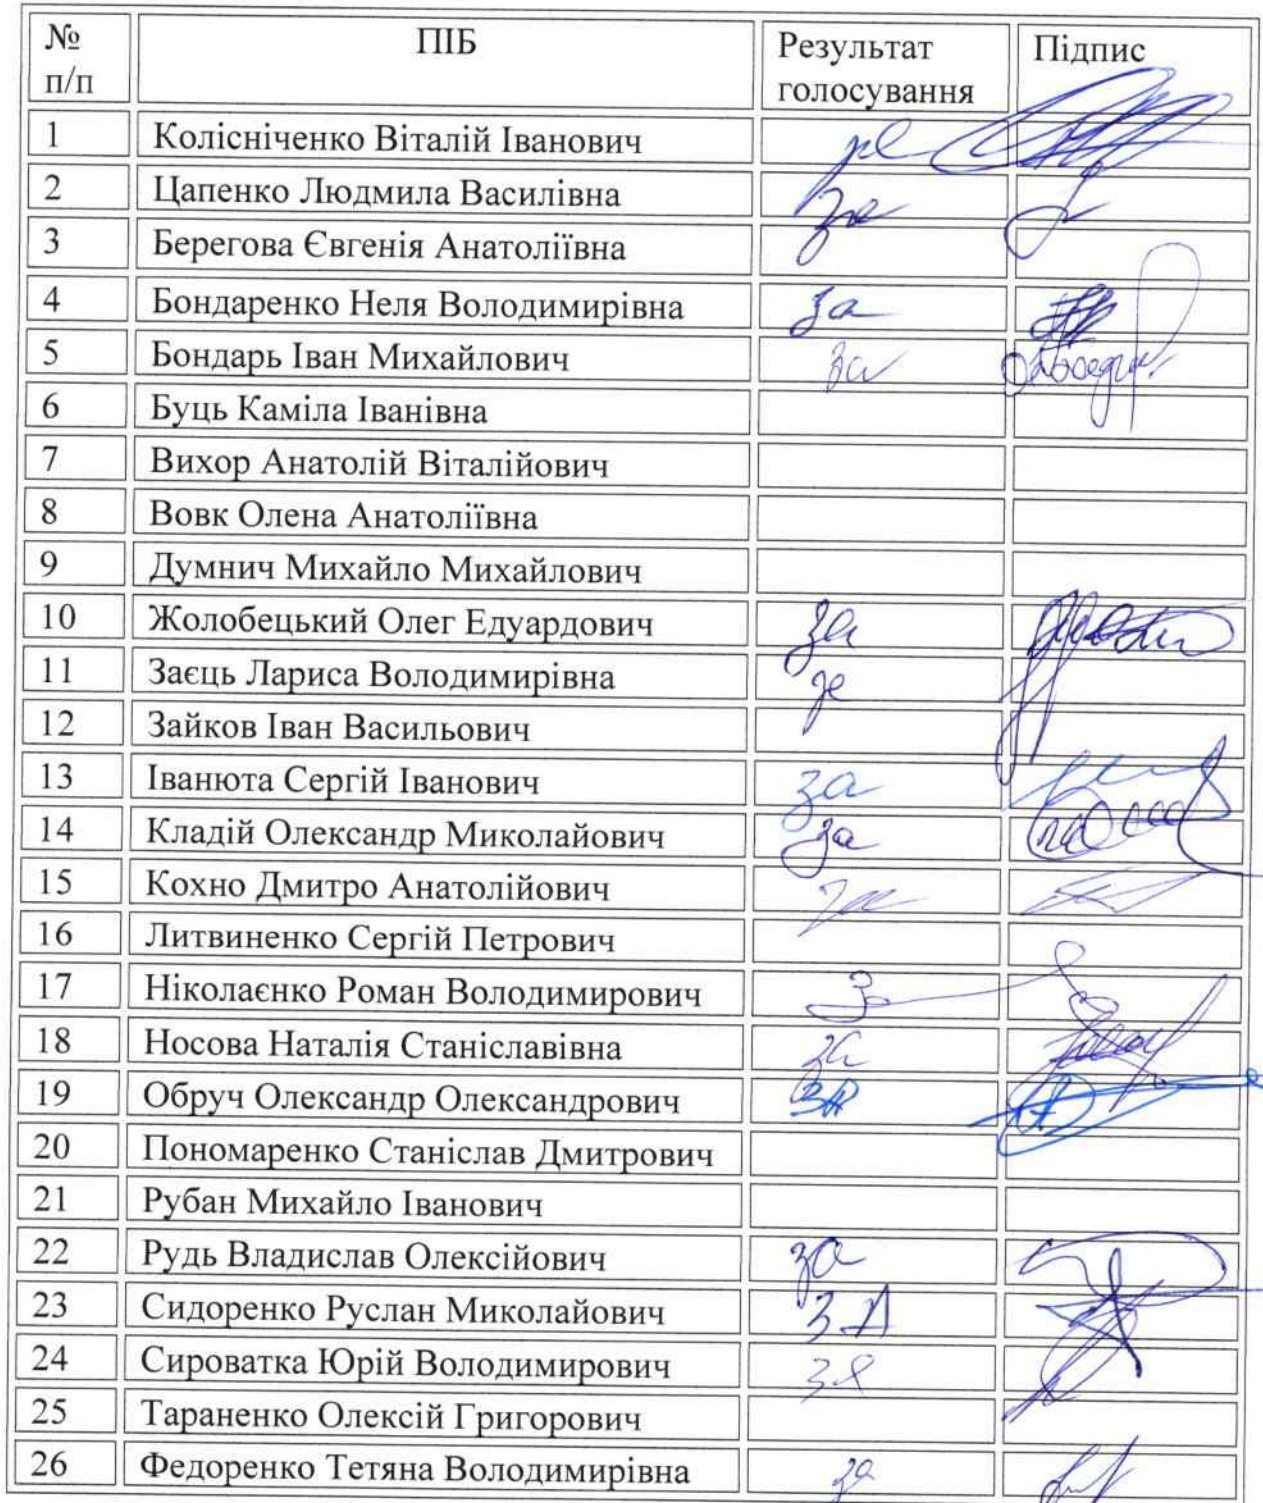 № п/п ПІБ Результат голосування Підпис
1 Колісніченко Віталій Іванович за
2 Цапенко Людмила Василівна за
3 Берегова Євгенія Анатоліївна
4 Бондаренко Неля Володимирівна за
5 Бондарь Іван Михайлович за
6 Буць Каміла Іванівна
7 Вихор Анатолій Віталійович
8 Вовк Олена Анатоліївна
9 Думнич Михайло Михайлович
10 Жолобецький Олег Едуардович за
11 Заєць Лариса Володимирівна за
12 Зайков Іван Васильович
13 Іванюта Сергій Іванович за
14 Кладій Олександр Миколайович за
15 Кохно Дмитро Анатолійович за
16 Литвиненко Сергій Петрович
17 Ніколаєнко Роман Володимирович
18 Носова Наталія Станіславівна за
19 Обруч Олександр Олександрович ЗА
20 Пономаренко Станіслав Дмитрович
21 Рубан Михайло Іванович
22 Рудь Владислав Олексійович за
23 Сидоренко Руслан Миколайович ЗА
24 Сироватка Юрій Володимирович за
25 Тараненко Олексій Григорович
26 Федоренко Тетяна Володимирівна за